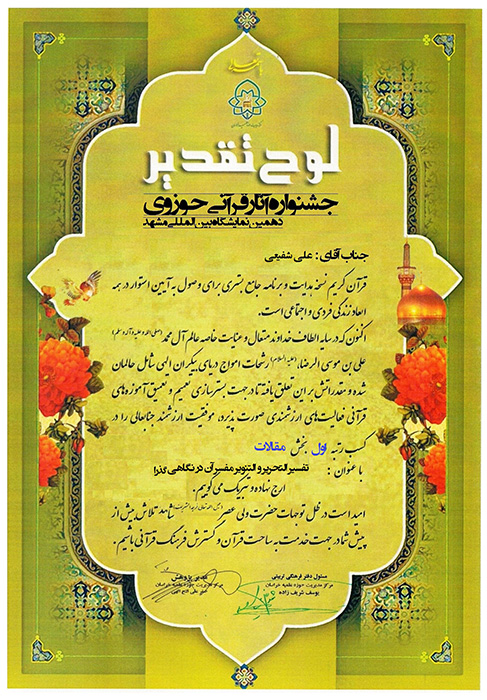 لوح تقدیر
جشنواره آثار قرآنی حوزوی
دهمین نمایشگاه بین المللی مشهد
جناب آقای : علی شفیعی
قرآن کریم نسخه هدایت و برنامه جامع بشری برای وصول به آیین استوار در همه
ابعاد زندگی فردی و اجتماعی است.
اکنون که در سایه الطاف خداوند متعال و عنایت خاصه عالم آل محمد (صلی الله علیه و آله و سلم)
علی بن موسی الرضا (علیه السلام) رشحات امواج دریای بیکران الهی شامل حالمان
شده و مقدراتش بر این تعلق یافته تا در جهت بسترسازی تعمیم و تعمیق آموزه های
قرآنی فعالیت های ارزشمندی صورت پذیرد، موفقیت ارزشمند جنابعالی را در
کسب رتبه اول بخش مقالات
با عنوان : تفسیر التحریر و التنویر مفسر آن در نگاهی گذرا
ارج نهاده و تبریک می گوییم.
امید است در ظل توجهات حضرت ولی عصر شاهد تلاش بیش از
پیش شما در جهت خدمت به ساحت قرآن و گسترش فرهنگ قرآنی باشیم.
مسئول دفتر فرهنگی تربیتی
مرکز مدیریت حوزه علمیه خراسان
یوسف شریف زاده
مدیر پژوهش
مرکز مدیریت حوزه علمیه خراسان